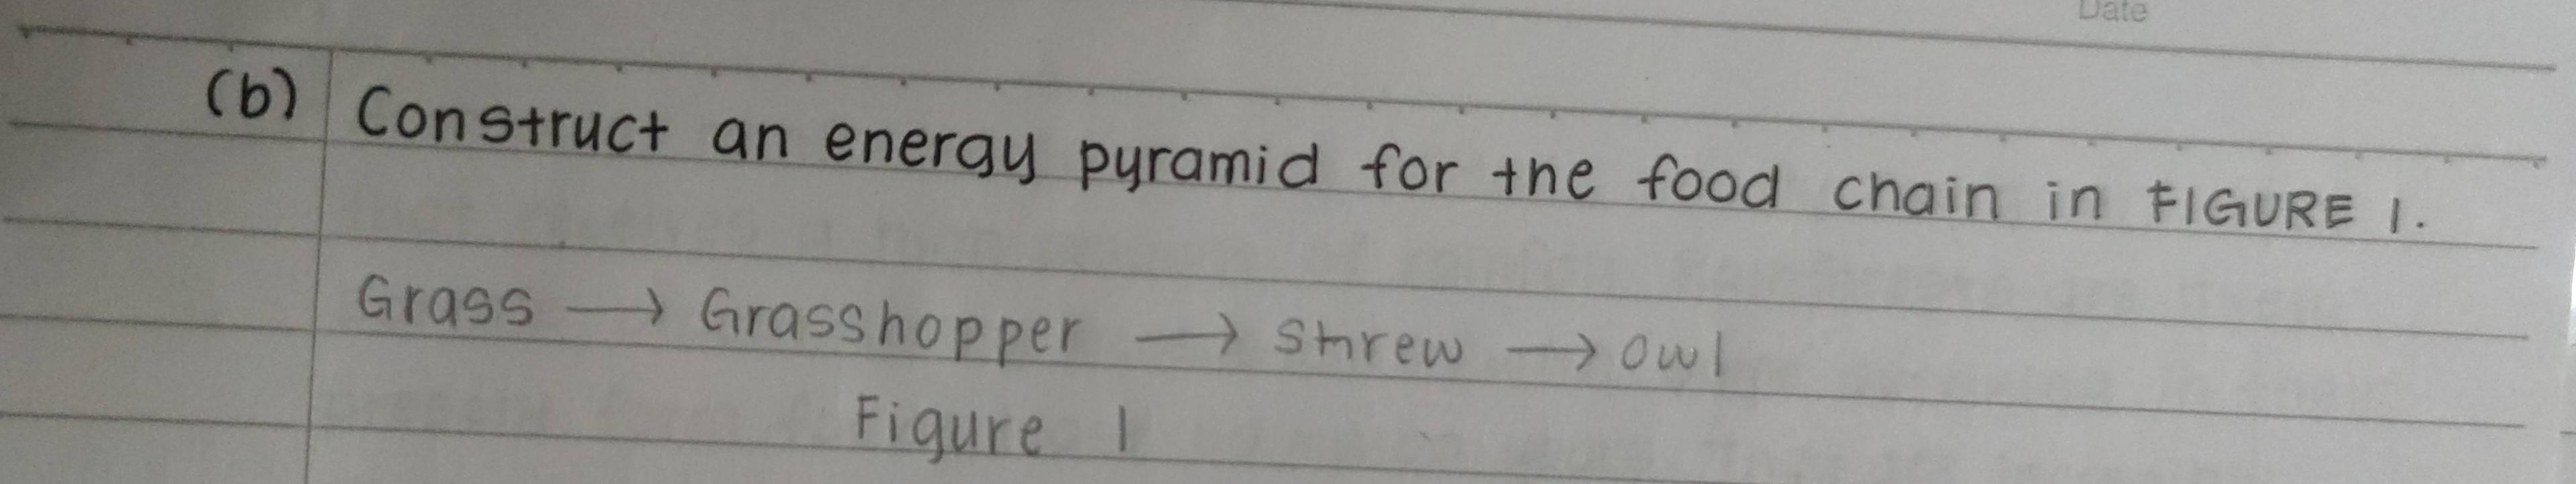 Date
(b) Construct an energy pyramid for the food chain in FIGURE 1.
Grass → Grasshopper → Shrew → Owl
Figure 1